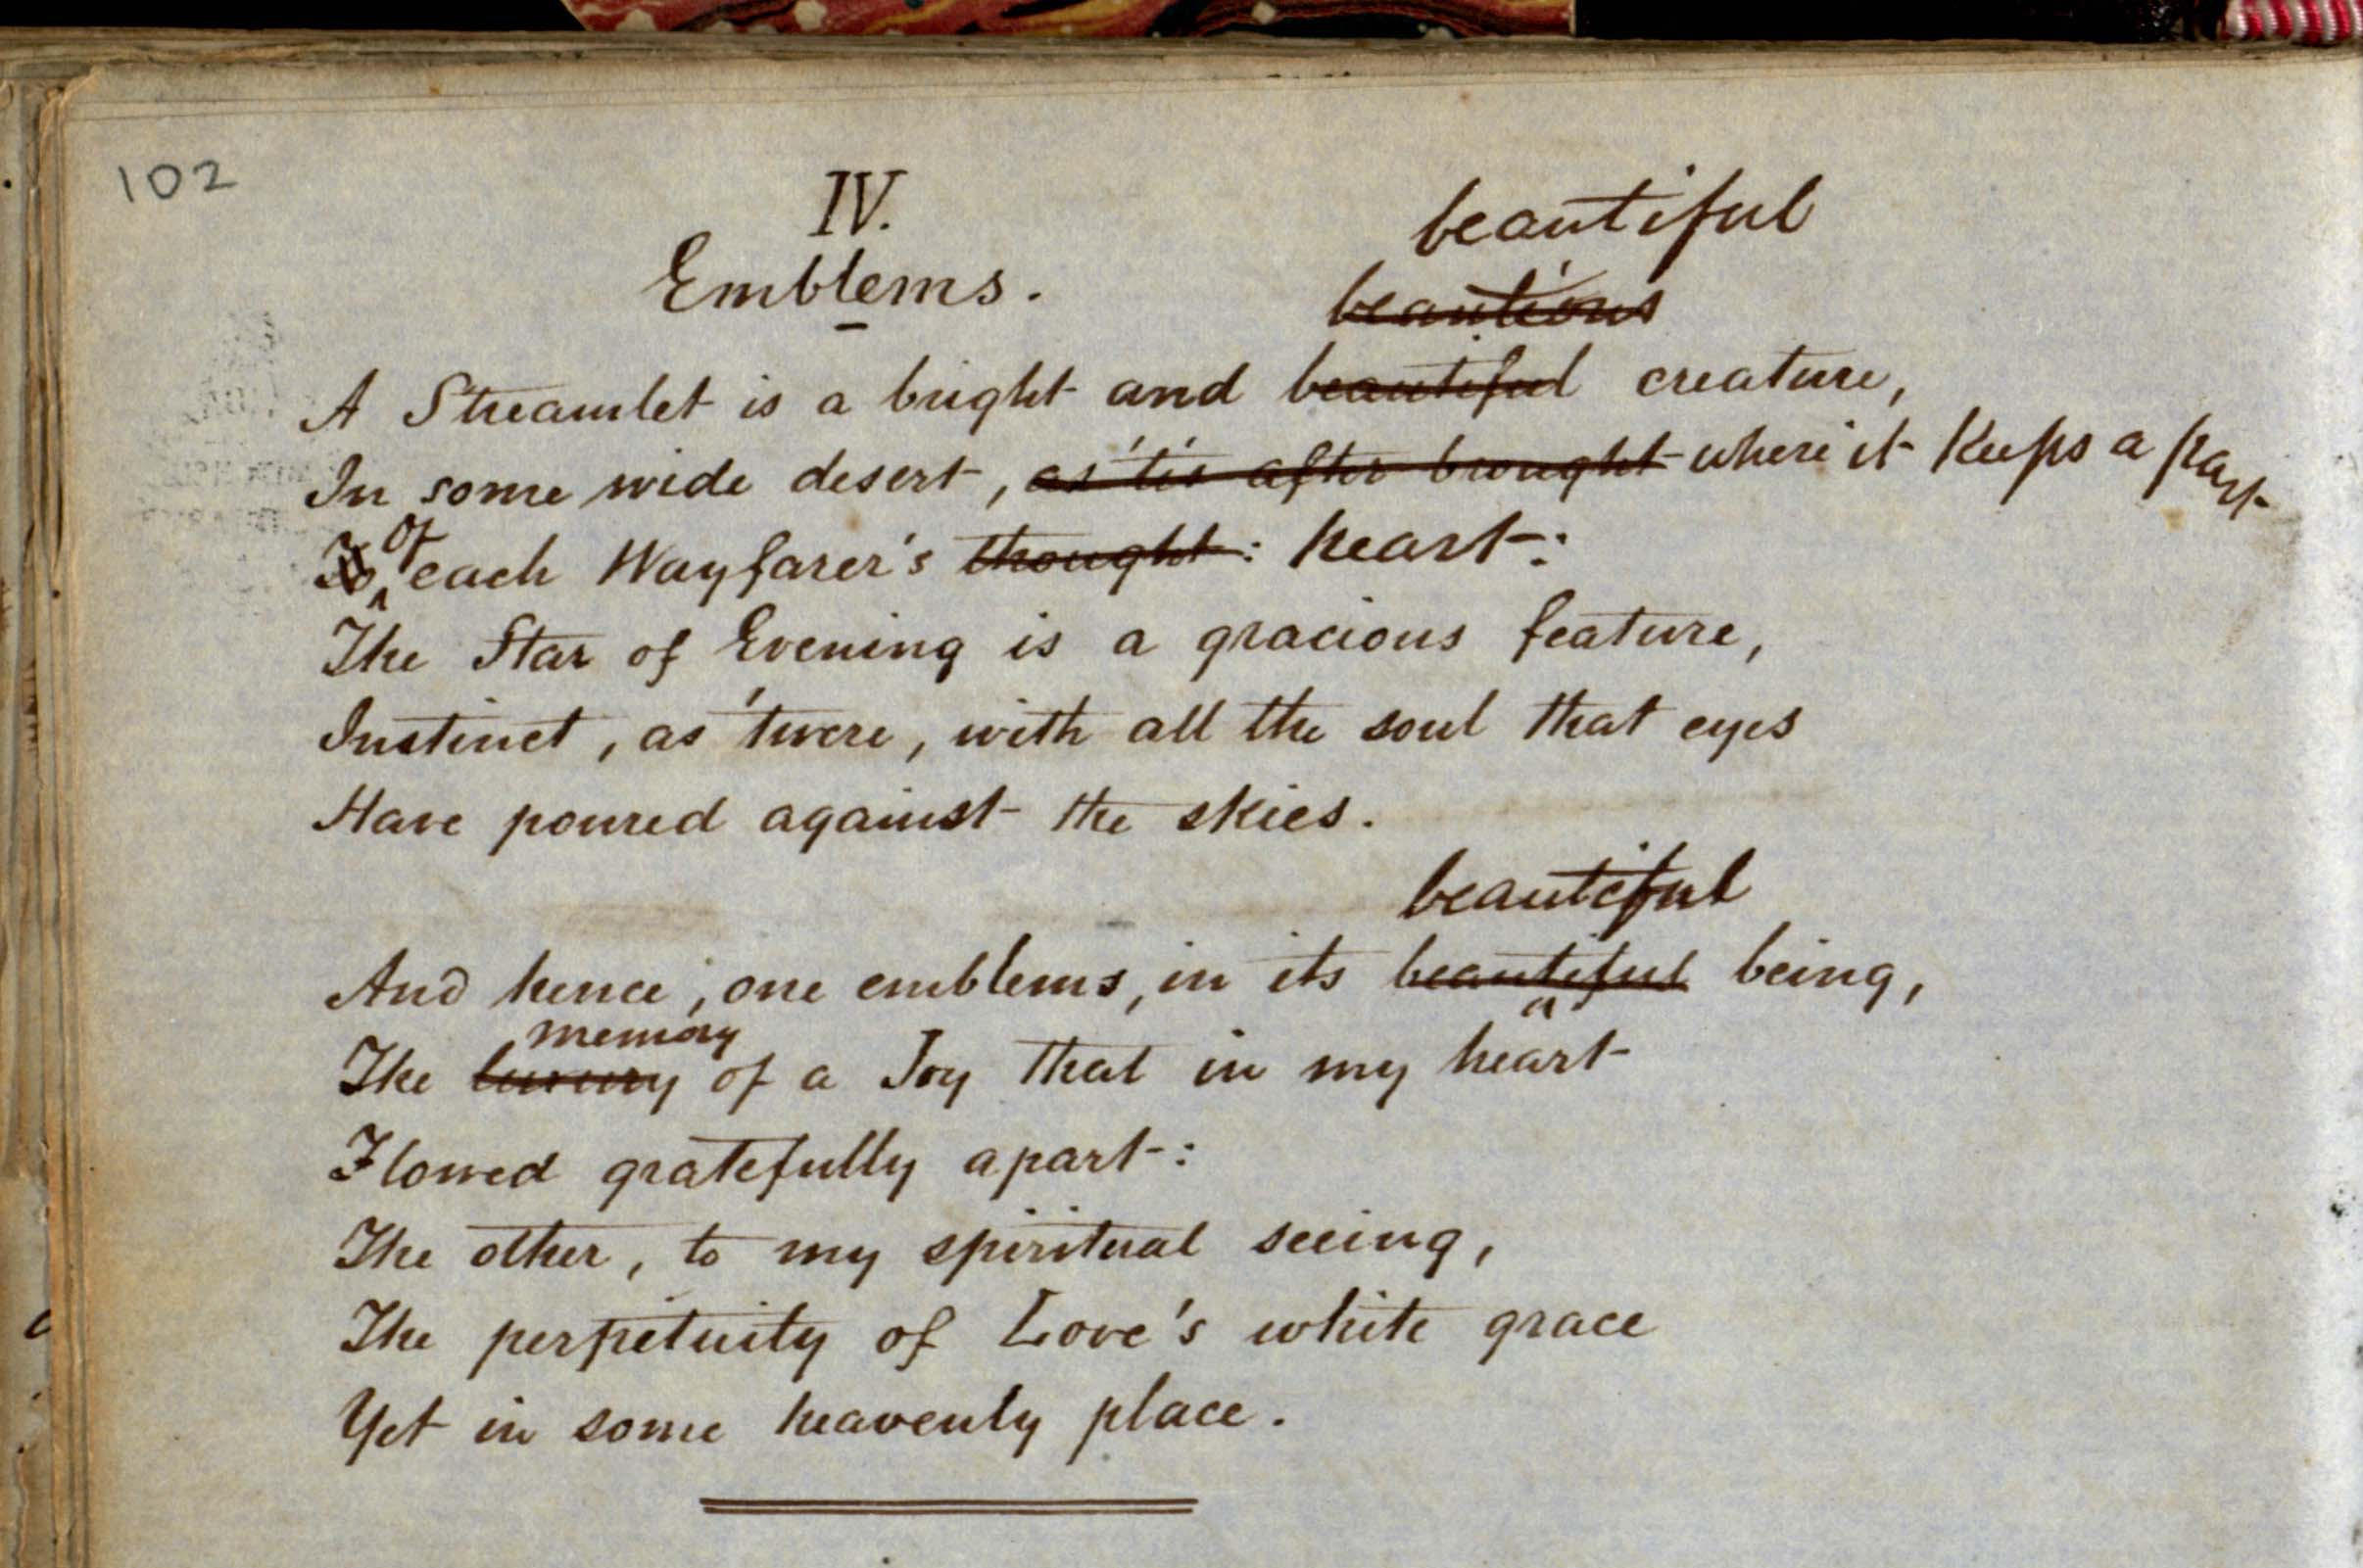 102
IV.
Emblems.
beautiful
beautious
A Streamlet is a bright and beautiful creature,
In some wide desert, as 'tis after brought where it keeps a part
To of each Wayfarer's thought: heart:
The Star of Evening is a gracious feature,
Instinct, as 'twere, with all the soul that eyes
Have poured against the skies.
beautiful
And hence, one emblems, in its beautiful being,
memory
The luxury of a Joy that in my heart
Flowed gratefully apart:
The other, to my spiritual seeing,
The perpetuity of Love's white grace
Yet in some heavenly place.